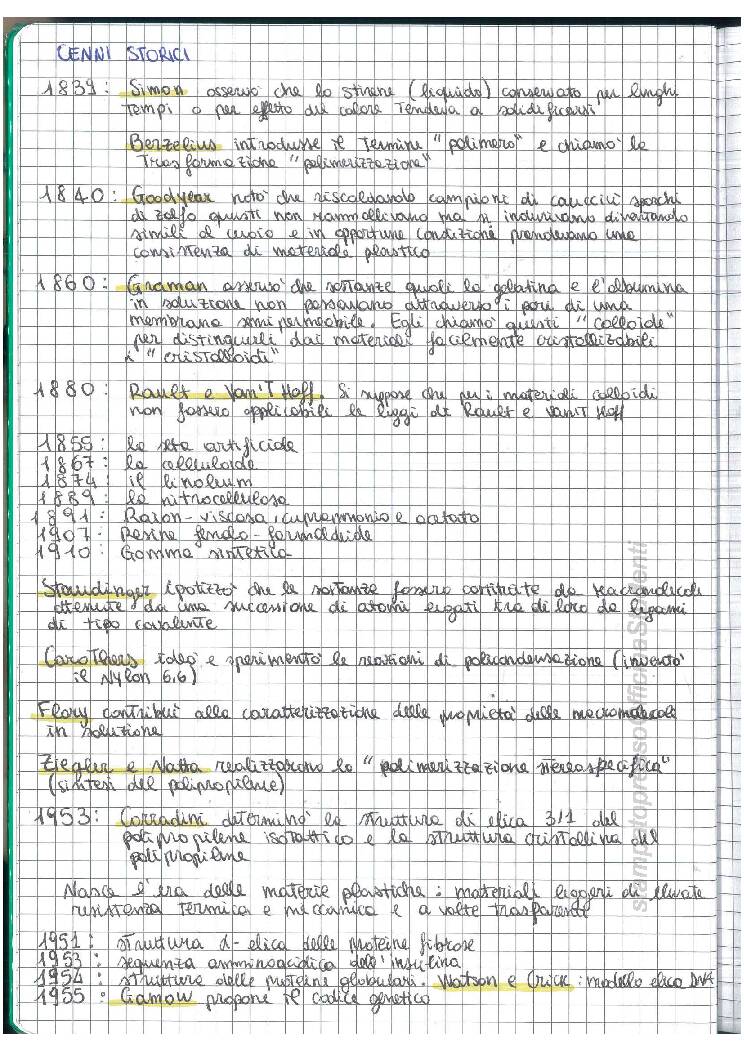 CENNI STORICI
1839: Simon osservò che lo stirene (liquido) conservato per lunghi
tempi o per effetto del calore tendeva a solidificarsi
Berzelius introdusse il termine "polimero" e chiamò la
trasformazione "polimerizzazione"
1840: Goodyear notò che riscaldando campioni di caucciù sporchi
di zolfo questi non rammollivano ma si indurivano diventando
simili al cuoio e in opportune condizioni prendevano una
consistenza di materiale plastico
1860: Graman osservò che sostanze quali la gelatina e l'albumina
in soluzione non passavano attraverso i pori di una
membrana semipermeabile. Egli chiamò questi "colloide"
per distinguerli dai materiali facilmente cristallizzabili
i "cristalloidi"
1880: Rault e Van'T Hoff. Si suppose che per i materiali colloidi
non fossero applicabili le leggi di Rault e Van'T Hoff
1855: la seta artificiale
1867: la celluloide
1874: il linoleum
1889: la nitrocellulosa
1891: Raion-viscosa, cuprammonio e acetato
1907: Resine fenolo-formaldeide
1910: Gomma sintetica
Staudinger ipotizzò che le sostanze fossero costituite da macromolecole
ottenute da una successione di atomi legati tra di loro da legami
di tipo covalente
Carothers ideò e sperimentò le reazioni di policondensazione (inventò
il Nylon 6.6)
Flory contribuì alla caratterizzazione delle proprietà delle macromolecole
in soluzione
Ziegler e Natta realizzarono la "polimerizzazione stereospecifica"
(sintesi del polipropilene)
1953: Corradini determinò la struttura di elica 3/1 del
polipropilene isotattico e la struttura cristallina del
polipropilene
Nasce l'era delle materie plastiche: materiali leggeri di elevate
resistenza termica e meccanica e a volte trasparenti
1951: struttura α-elica delle proteine fibrose
1953: sequenza amminoacidica dell'insulina
1954: strutture delle proteine globulari. Watson e Crick: modello elica DNA
1955: Gamow propone il codice genetico
stampato presso Officina Studenti